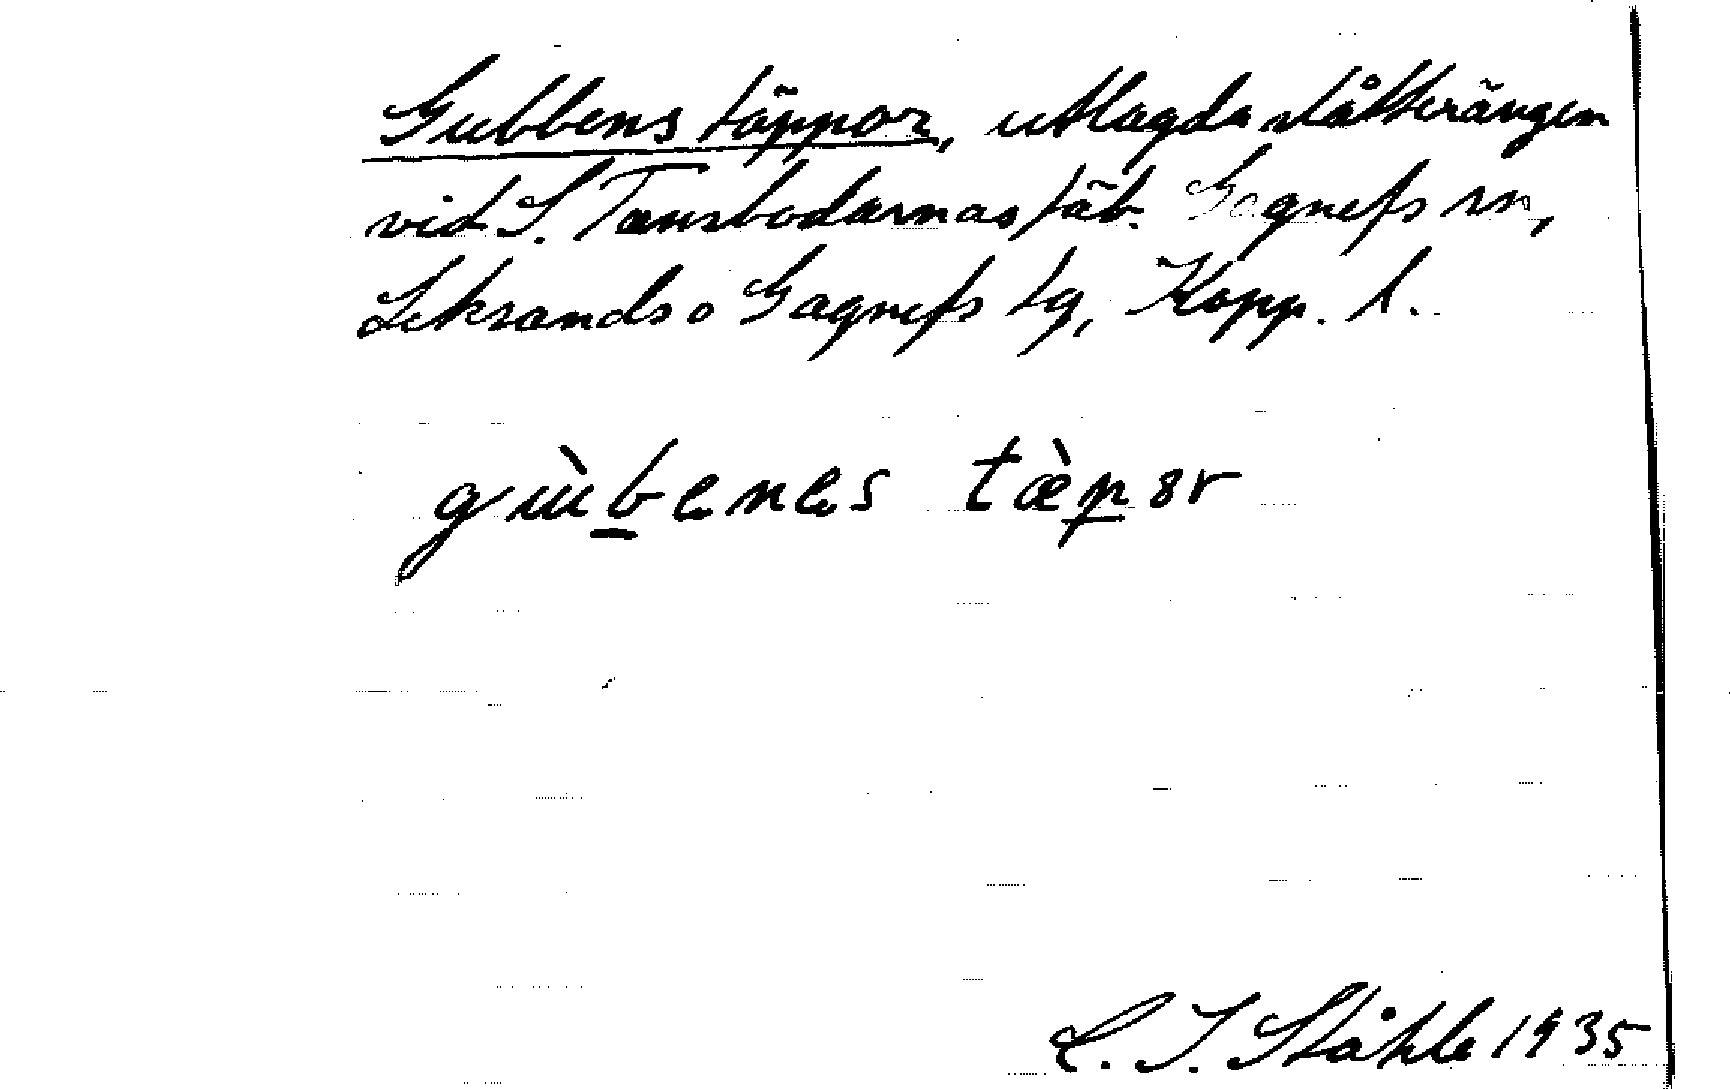 Gubbens täppor, utlagda slåtterängen
vid S. Tansbodarnas fäb. Gagnefs sn,
Leksands o Gagnefs tg, Kopp. l.
gùbenes tæ̀por
C. I. Ståhle 1935